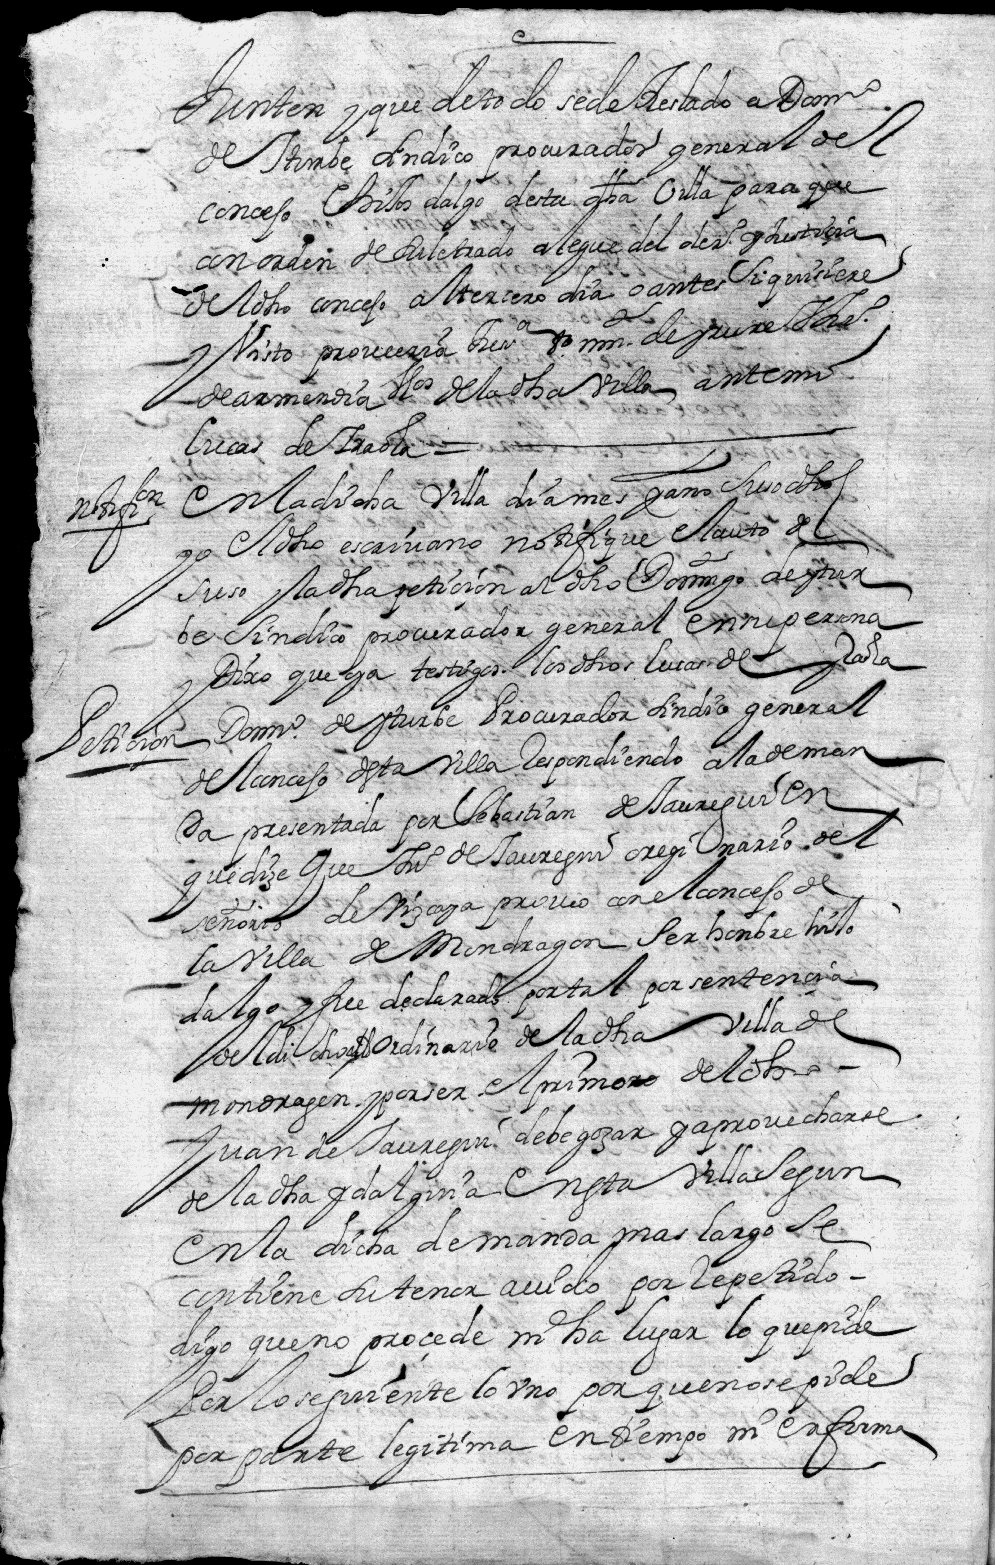 Junten y que de todo se de traslado a Dom.º
de Yturbe sindico procurador general del
concejo e hijos dalgo desta dha villa para que
con orden de su letrado alegue del der.º y justicia
del dho concejo al tercero dia o antes si quisiere
y visto proveeria
de armendia de la dha villa ante mi
Lucas de
notifi.on
En la dicha villa dia mes y año suso dho
yo el dho escrivano notifique el auto de
suso y la dha peticion al dho Domingo de ytur
be sindico procurador general en su persona
y Dixo que oya testigos los dhos Lucas de
Peticion
Dom.º de yturbe Procurador sindico general
del concejo desta villa Respondiendo a la deman
da presentada por Sebastian de Jauregui en
que dize que Ju.º de Jauregui oregionario del
señorio de Vizcaya provo con el concejo de
la villa de Mondragon ser hombre hijo
dalgo y fue declarado por tal por sentencia
del dicho ordinario de la dha villa de
mondragon y por ser el primero del dho
Juan de Jauregui debe gozar y aprovecharse
de la dha ydalguia en esta villa segun
en la dicha demanda mas largo se
contiene su tenor avido por Repetido
digo que no procede ni ha lugar lo que pide
Por lo seguiente lo uno por que no se pide
por parte legitima en tiempo ni en forma